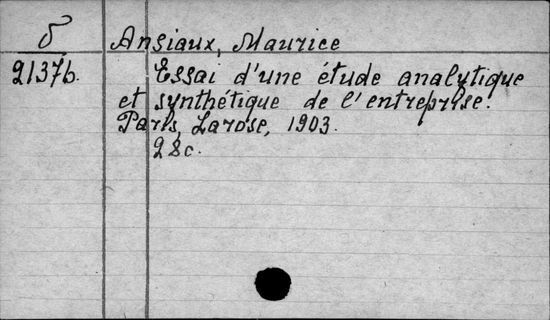 δ
21376.
Ansiaux, Maurice
Essai d'une étude analytique
et synthétique de l'entreprise.
Paris, Larose, 1903.
28c.